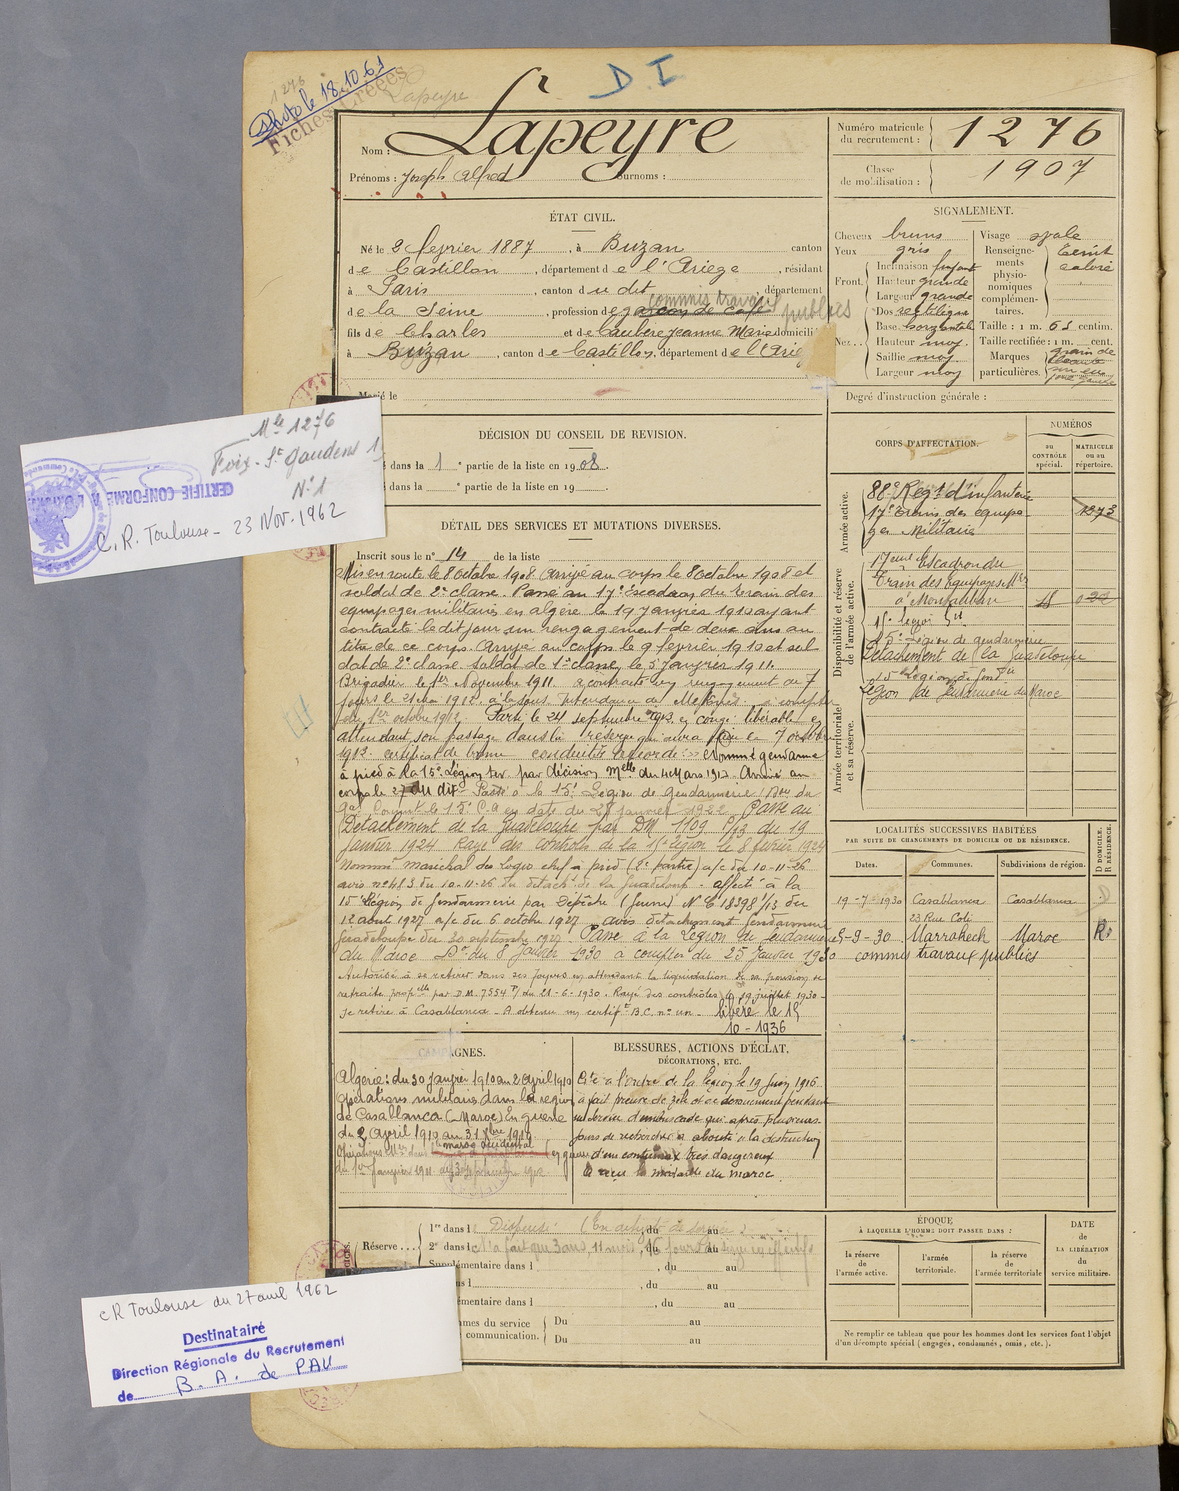 1276
Photo le 18.10.61
Fiches Créées
Lapeyre
D I
Nom : Lapeyre
Prénoms : Joseph Alfred Surnoms :
Numéro matricule du recrutement : 1276
Classe de mobilisation : 1907
ÉTAT CIVIL.
Né le 2 fevrier 1887, à Buzan canton
de Castillon, département de l'Ariège, résidant
à Paris, canton du dit, département
commis travaux publics
de la Seine, profession de garçon de café
fils de Charles et de Caubère Jeanne Marie domiciliés
à Buzan, canton de Castillon, département de l'Ariège
Marié le
SIGNALEMENT.
Cheveux bruns
Yeux gris
Front. Inclinaison fuyant
Hauteur grande
Largeur grande
Nez. Dos rectiligne
Base horizontale
Hauteur moy.
Saillie moy.
Largeur moy
Visage ovale
Renseignements physionomiques complémentaires. Teint coloré
Taille : 1 m. 61 centim.
Taille rectifiée : 1 m. cent.
Marques particulières. grain de
Degré d'instruction générale :
M le 1276
Foix - St Gaudens 1
N° 1
CERTIFIÉ CONFORME A L'ORIGINAL
C.R. Toulouse - 23 Nov. 1962
DÉCISION DU CONSEIL DE REVISION.
dans la 1 e partie de la liste en 1908.
dans la e partie de la liste en 19
DÉTAIL DES SERVICES ET MUTATIONS DIVERSES.
Inscrit sous le n° 14 de la liste
Mis en route le 8 octobre 1908. Arrivé au corps le 8 octobre 1908 et
soldat de 2e classe. Passé au 17e Escadron du train des
équipages militaires en algérie le 19 janvier 1910 ayant
contracté le dit jour un rengagement de deux ans au
titre de ce corps. Arrivé au corps le 9 fevrier 1910 et sol
dat de 2e classe. soldat de 1e classe, le 5 janvier 1911.
Brigadier le 1er Novembre 1911. a contracté un rengagement de 7
du 1er octobre 1912. Parti le 24 septembre 1912 en congé libérable en
attendant son passage dans la réserve qui aura lieu le 7 octobre
1912. certificat de bonne conduite accordé. Nommé gendarme
à pied à la 15e Légion ter par décision Melle du 4 Mars 1913. Arrivé au
corps le 27 du dit. Passé à la 15e Légion de Gendarmerie
Gal Comt le 15e C.A en date du 28 janvier 1922. Passé au
Détachement de la Guadeloupe par DM 1909 2/13 du 19
Janvier 1924. Rayé des contrôles de la 15e légion le 8 février 1924
Nommé maréchal des Logis chef à pied (2e partie) a/c du 10-11-26
avis n° 483 du 10-11-26 du détacht de la Guadeloupe. affecté à la
15e Légion de Gendarmerie par Dépêche (Guerre) N° C 18398 1/13 du
12 aout 1927 a/c du 6 octobre 1927 avis détachement Gendarmerie
Guadeloupe du 30 septembre 1927. Passé à la Légion de Gendarmerie
du Maroc. Don du 8 Janvier 1930 à compter du 25 Janvier 1930
Autorisé à se retirer dans ses foyers en attendant la liquidation de sa pension de
retraite propelle par D.M. 7554 P/ du 21-6-1930. Rayé des contrôles le 19 juillet 1930 -
se retire à Casablanca - A obtenu un certift B.C. n° un - libéré le 15
10 - 1936
CORPS D'AFFECTATION.
NUMÉROS
au CONTRÔLE spécial.
MATRICULE ou au répertoire.
Armée active.
88e Régt d'infanterie
17e Train des équipa- 1273
ges Militaire
Disponibilité et réserve de l'armée active.
17eme Escadron du
Train des Equipages Mres
à Montauban
15e Légion de gendarmerie
Détachement de la Guadeloupe
15e Légion de Gendie
Légion de Gendarmerie du Maroc
Armée territoriale et sa réserve.
LOCALITÉS SUCCESSIVES HABITÉES
PAR SUITE DE CHANGEMENTS DE DOMICILE OU DE RÉSIDENCE.
Dates. Communes. Subdivisions de région. D DOMICILE. R RÉSIDENCE.
19-7-1930 Casablanca Casablanca D
23 Rue Coli
5-9-30 Marrakech Maroc R.
commis travaux publics
CAMPAGNES.
Algérie : du 30 janvier 1910 au 2 avril 1910
opérations militaires dans la région
de Casablanca (Maroc) En guerre
du 2 avril 1910 au 31 Xbre 1910
maroc occidental
en guerre
du 1er janvier 1911 au septembre 1912
BLESSURES, ACTIONS D'ÉCLAT,
DÉCORATIONS, ETC.
Cité à l'ordre de la légion le 19 Juin 1916
a fait preuve de zèle et de dévouement pendant
un service d'embuscade qui après plusieurs
jours de recherches a abouti à la destruction
d'un contumax très dangereux
A reçu la médaille du maroc.
Réserve
1re dans l Dispensé (En du de service) au
2e dans l n'a fait que 3 ans, 11 mois, du au
Supplémentaire dans l , du au
ns l , du au
émentaire dans l , du au
mes du service communication. Du au
Du au
ÉPOQUE
À LAQUELLE L'HOMME DOIT PASSER DANS :
la réserve de l'armée active.
l'armée territoriale.
la réserve de l'armée territoriale
DATE
de
LA LIBÉRATION
du
service militaire.
Ne remplir ce tableau que pour les hommes dont les services font l'objet
d'un décompte spécial (engagés, condamnés, omis, etc.).
CR Toulouse du 27 avril 1962
Destinataire
Direction Régionale du Recrutement
de B. A. de PAU